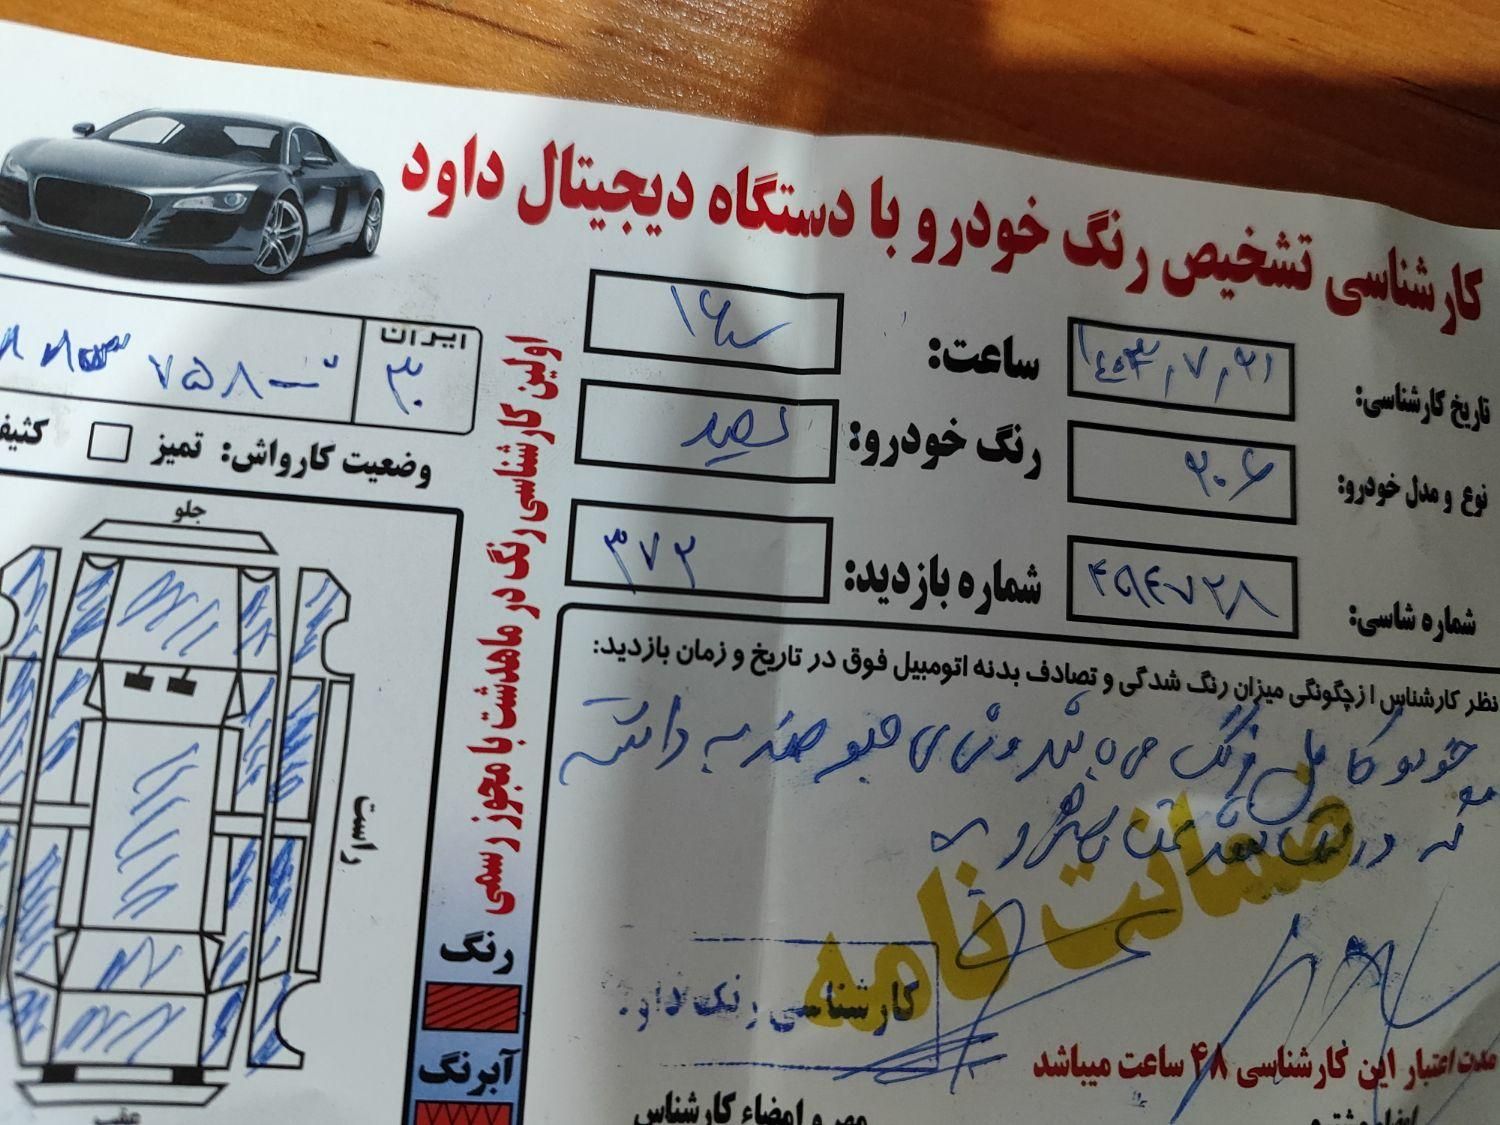 کارشناسی تشخیص رنگ خودرو با دستگاه دیجیتال داود
تاریخ کارشناسی: ۱۴۰۳,۷,۲۱
ساعت:
نوع و مدل خودرو: ۲۰۶
رنگ خودرو: سفید
شماره شاسی:
شماره بازدید: ۳۷۲
ایران
۳۰
۷۵۸
وضعیت کارواش: تمیز
اولین کارشناسی رنگ در ماهدشت با مجوز رسمی
جلو
راست
عقب
رنگ
آبرنگ
نظر کارشناس ازچگونگی میزان رنگ شدگی و تصادف بدنه اتومبیل فوق در تاریخ و زمان بازدید:
خودرو کامل رنگ می باشد ضربه داشته
که درست شده
ضمانت نامه
کارشناسی رنگ داود
مدت اعتبار این کارشناسی ۴۸ ساعت میباشد
مهر و امضاء کارشناس